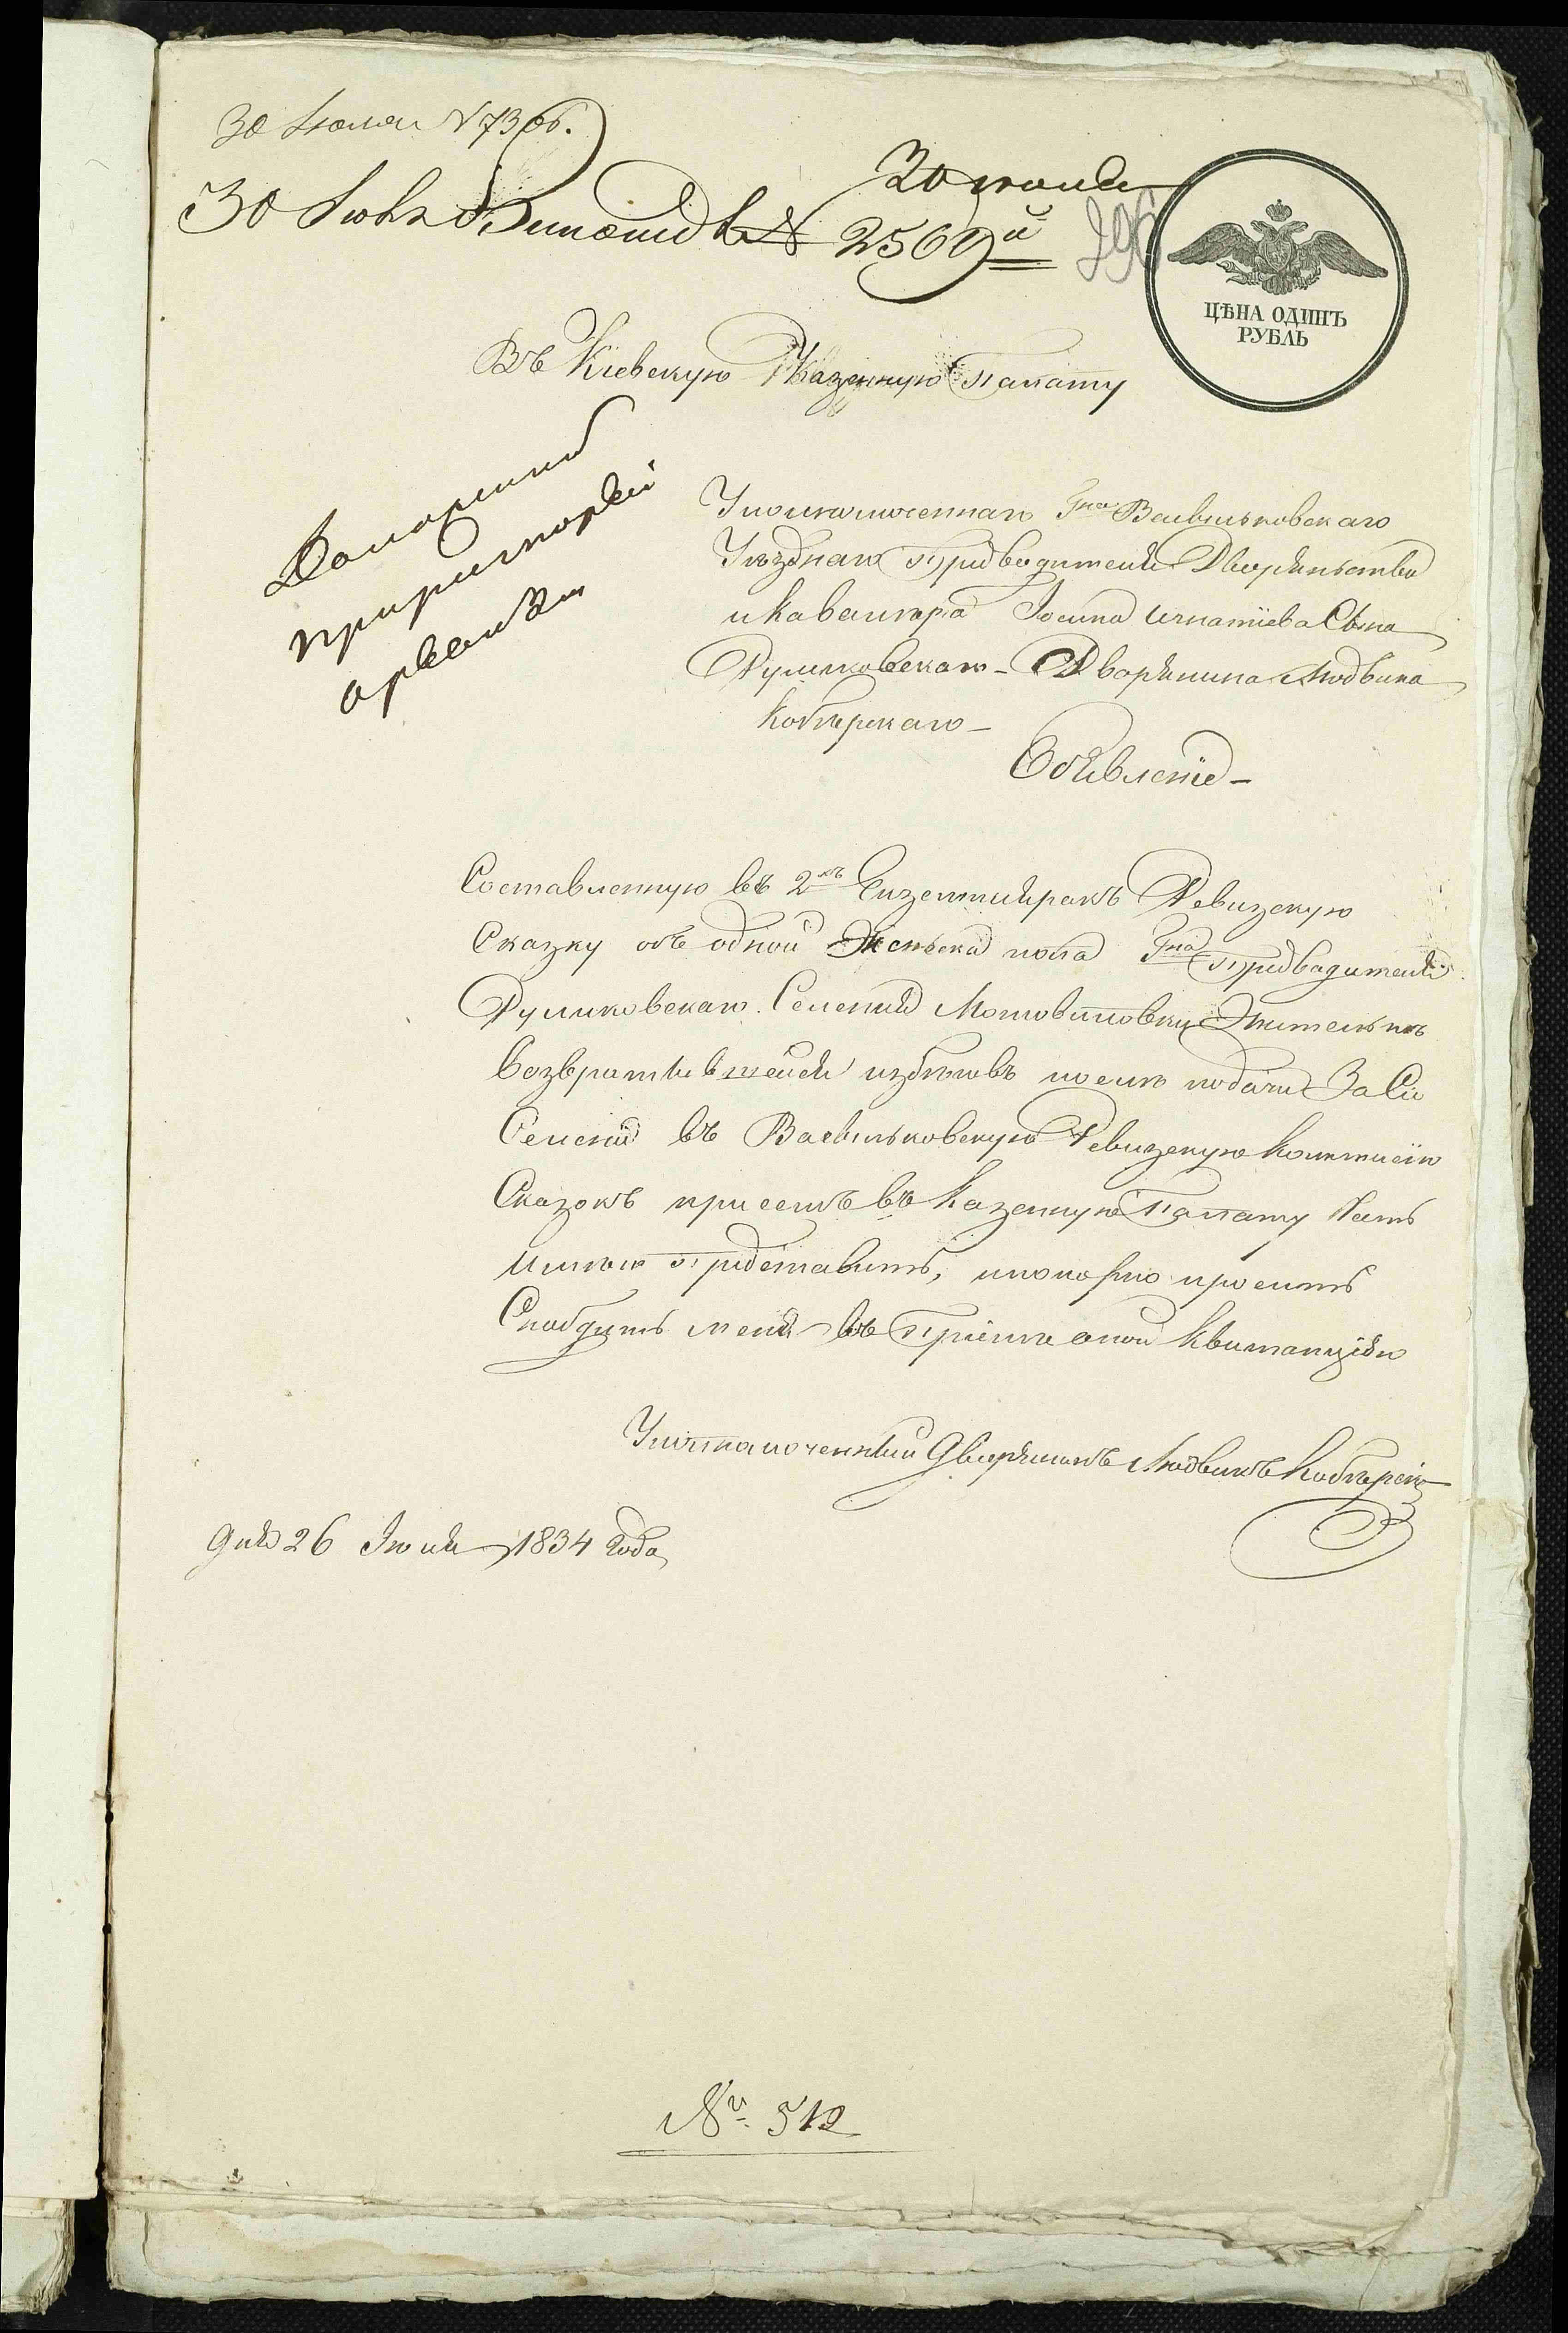 30 Июля № 7306.
30 Июля 2560й
30 июля
296
ЦѢНА ОДИНЪ
РУБЛЬ
Въ Кіевскую Казенную Палату
Уполномоченнаго Гна Васильковскаго
Уѣзднаго Предводителя Дворянства
и Кавалера Іосипа Игнатіева Сына
Руликовскаго – Дворянина Людвика
Кобѣрскаго –
Объявленіе –
Составленную въ 2хъ Екземплярахъ Ревизскую
Сказку объ одной Женьска пола Гна Предводителя
Руликовскаго Селенія Мотовиловки Жительнѣ
возвратившейся изъ бѣговъ послѣ подачи За Сіе
Селеніе въ Васильковскую Ревизскую Коммисію
Сказокъ при семъ въ Казенную Палату Честь
Имѣю Представить, и покорно просить
Снабдить меня въ Пріемѣ оной Квитанціею
Уполномоченный Дворянинъ Людвикъ Кобѣрскій
Дня 26 Іюля 1834 года
№ 512